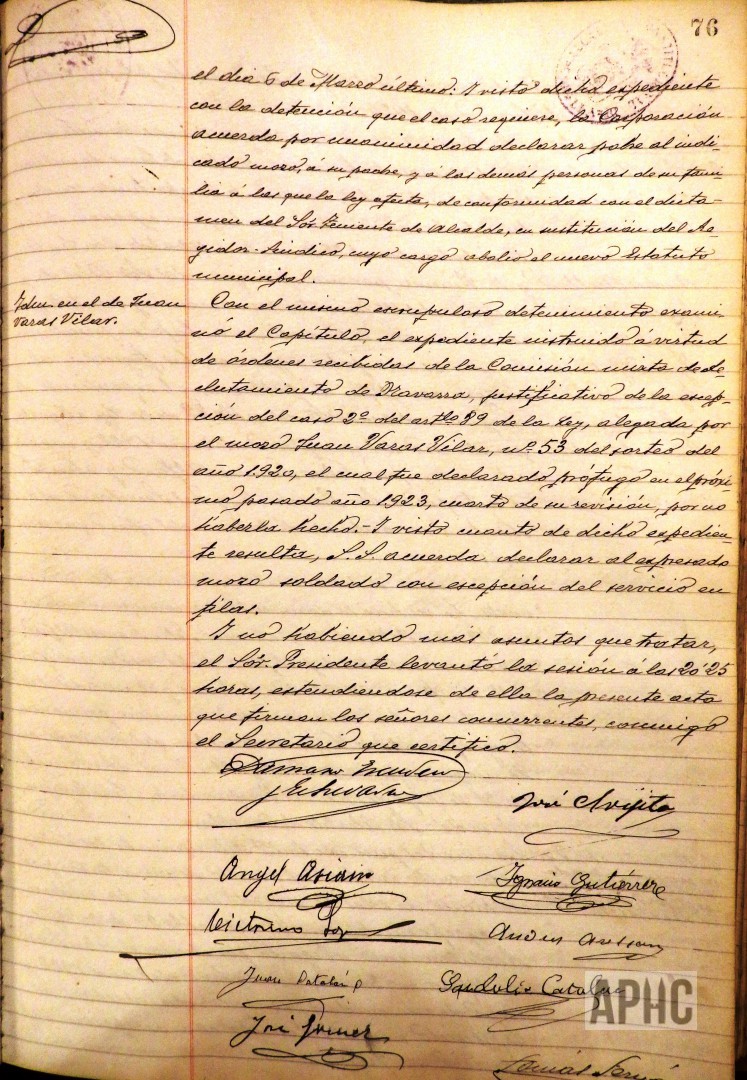 76
el dia 6 de Marzo último: I visto dicho expediente
con la detención que el caso requiere, la Corporación
acuerda por unanimidad declarar pobre al indi-
cado mozo, á su padre, y á las demás personas de su fami-
lia á las que la ley afecta, de conformidad con el dicta-
men del Sór. Teniente de Alcalde, en sustitución del Re-
gidor-Síndico, cuyo cargo abolió el nuevo Estatuto
municipal.
Idem. en el de Juan
Varas Vilar.
Con el mismo escrupuloso detenimiento exami-
nó el Capítulo, el expediente instruido á virtud
de órdenes recibidas de la Comisión mixta de Re-
clutamiento de Navarra, justificativo de la escep-
ción del caso 2º del artlº 89 de la Ley, alegada por
el mozo Juan Varas Vilar, nº 53 del sorteo del
año 1.920, el cual fue declarado prófugo en el próxi-
mo pasado año 1923, cuarto de su revisión, por no
haberla hecho.- I visto cuanto de dicho expedien-
te resulta, S.S. acuerda declarar al expresado
mozo soldado con escepción del servicio en
filas.
I no habiendo más asuntos que tratar,
el Sór. Presidente levantó la sesión á las 20'25
horas, estendiendose de ella la presente acta
que firman los señores concurrentes, conmigo
el Secretario que certifico.
José
Angel Asiain
Ignacio Gutiérrez
Victorino
Juan Catalán
Gandulio Catalán
José
Tomás
APHC